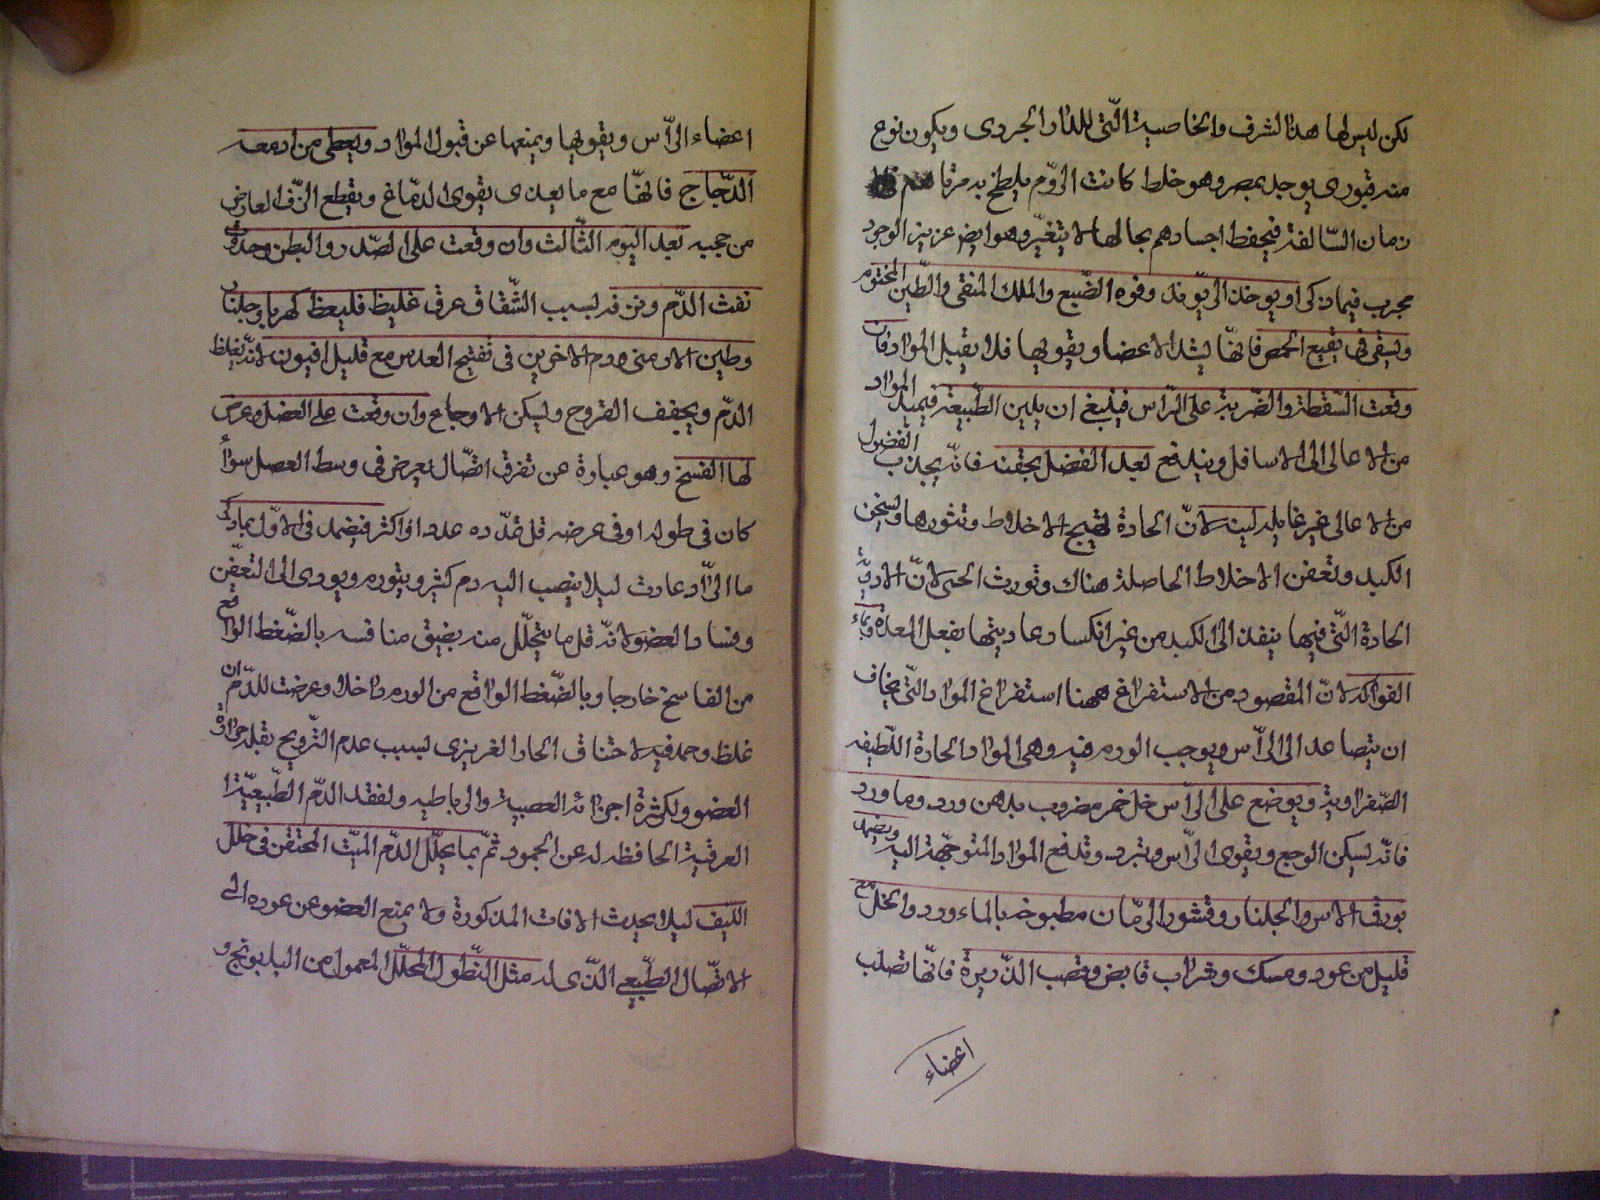 لكن ليس لها هذا الشرف والخاصية الّتى للدار الجردى ويكون نوع
منه قبورى يوجد بمصر وهو خلط كانت الروّم يلطخ به موتاهم
زمان السّالفة فيحفظ اجسادهم بحالها لا يتغيّر وهو ايض عزيز الوجود
مجرب فيما ذكر او يوخذ الريّوند وفوه الصّبغ والملك المنقى والطّين المختوم
ويسقى فى نقيع الحمص فانّها يشد الاعضا ويقويها فلا يقبل المواد فان
وقعت السّقطة والضّربة على الرّاس فينبغى ان يلين الطّبيعة فيميل المواد
من الاعالى الى الاسافل ويندفع بعد الفصد بحقنه فانّه يجذب الفضول
من الاعالى غير غايله لينه لانّ الحادة تهيج الاخلاط وتثورها ويسخن
الكبد وتعفن الاخلاط الحاصلة هناك وتورث الحمى لانّ الادويّة
الحادة التّى فيها ينفذ الى الكبد من غير انكسار عاديتها بفعل المعدة وبماء
الفواكه لانّ المقصود من الاستفراغ ههنا استفراغ المواد التّى يخاف
ان يتصاعد الى الرّاس ويوجب الورم فيه وهى المواد الحادة اللّطيفه
الصّفراوية ويوضع على الرّاس خل خمر مضروب بدهن ورد وماورد
فانّه يسكن الوجع ويقوى الرّاس ويبرد وتدفع المواد المتوجّهة اليه ويضمد
بورق الاس والجلنار وقشور الرمّان مطبوخه بالماء ورد والخلّ مع
قليل من عود ومسك وشراب قابض وقصب الذّريرة فانّها تصلب
اعضاء
اعضاء الرّاس ويقويها ويمنعها عن قبول المواد ويعطى من ادمغه
الدّجاج فانهّا مع ما يغذى يقوى الدمّاغ ويقطع النّزف العارض
من حجبه بعد اليوم الثّالث وان وقعت على الصّدر والبطن وحدث
نفث الدّم ونزفه لسبب انشّقاق عرق غليظ فليعط كهربا وجلنار
وطين الارمنى ودم الاخوين فى نقيع العدس مع قليل افيون لانّه يغلظ
الدّم ويجفف القروح ويسكن الاوجاع وان وقعت على العضل وعرض
لها الفسخ وهو عبارة عن تفرق اتصّال يعرض فى وسط العضل سواء
كان فى طوله او فى عرضه قل عدّده عدد او اكثر فيضمد فى الاوّل بما ذكر
ما الرّادعات ليلا ينصب اليه دم كثير ويتورم ويودى الى التعفّن
وفساد العضو لانّه قل ما يتحلّل منه بضيق منافسه بالضّغط الواقع
من الفاسخ خارجا وبالضّغط الواقع من الورم داخلا وعرضت للدّم ان
غلظ وجمد فيه لاختناق الحار الغريزى لسبب عدم التّرويح بقلة حرارة
العضو ولكثرة اجزائه العصبية والرباطيه ولفقد الدّم الطّبيعيّة
العرقية الحافظه له عن الجمود ثمّ بما يحلّل الدّم الميّت المحتقن فى خلل
الليف ليلا يحدث الافات المذكورة ولا يمنع العضو عن عوده الى
الاتصّال الطّبيعى الذّى له مثل النّطول المحلّل المعمول من البابونج و